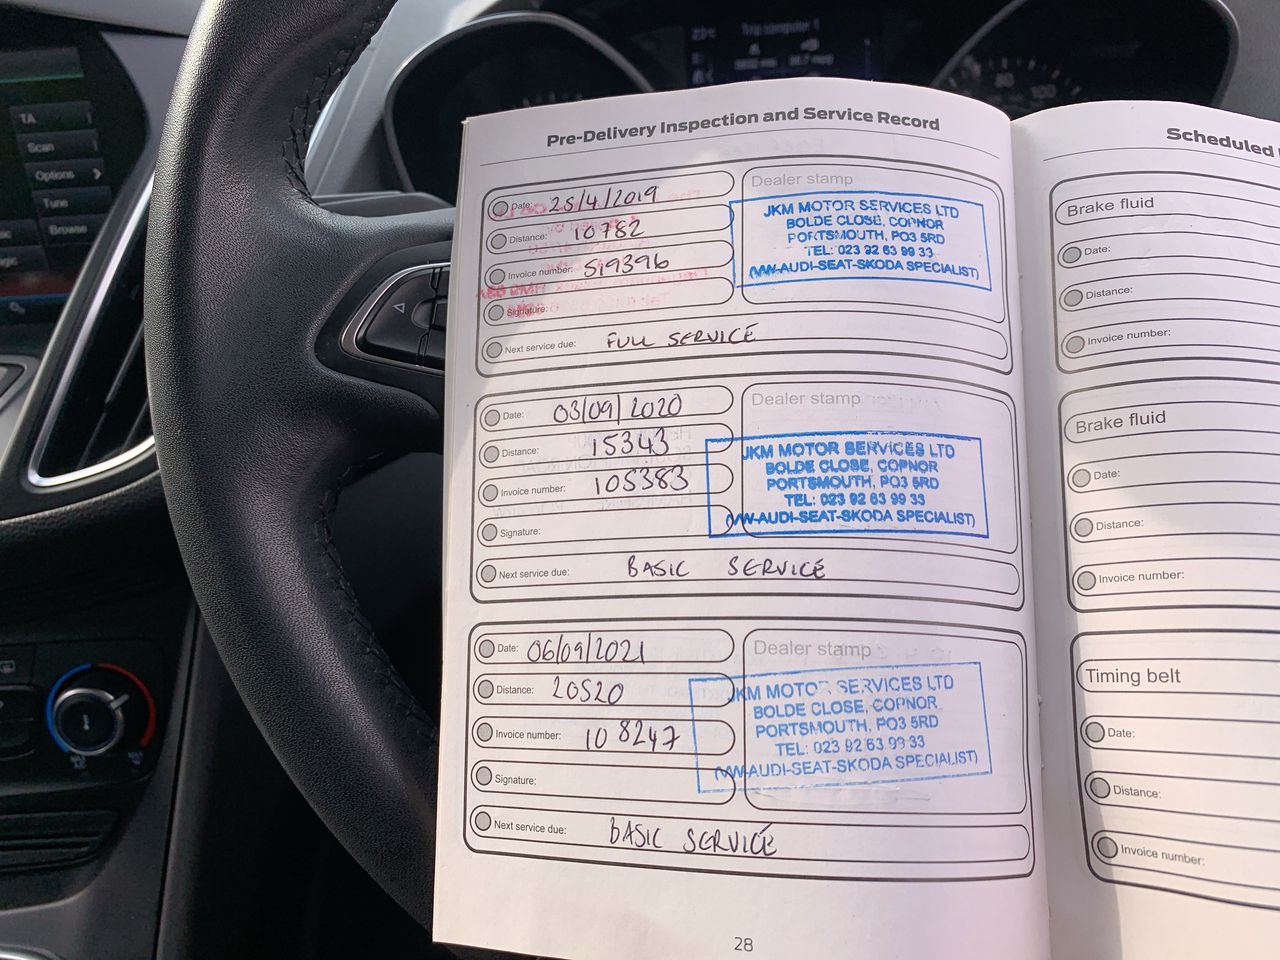 Trip computer 1
TA
Scan
Options
Tune
Browse
Pre-Delivery Inspection and Service Record
Date: 25/4/2019
Distance: 10782
Invoice number: 519396
Signature:
Next service due: FULL SERVICE
Dealer stamp
JKM MOTOR SERVICES LTD
BOLDE CLOSE, COPNOR
PORTSMOUTH, PO3 5RD
TEL: 023 92 63 99 33
(VW-AUDI-SEAT-SKODA SPECIALIST)
Date: 03/09/2020
Distance: 15343
Invoice number: 105383
Signature:
Next service due: BASIC SERVICE
Dealer stamp
JKM MOTOR SERVICES LTD
BOLDE CLOSE, COPNOR
PORTSMOUTH, PO3 5RD
TEL: 023 92 63 99 33
(VW-AUDI-SEAT-SKODA SPECIALIST)
Date: 06/09/2021
Distance: 20520
Invoice number: 108247
Signature:
Next service due: BASIC SERVICE
Dealer stamp
JKM MOTOR SERVICES LTD
BOLDE CLOSE, COPNOR
PORTSMOUTH, PO3 5RD
TEL: 023 92 63 99 33
(VW-AUDI-SEAT-SKODA SPECIALIST)
28
Scheduled
Brake fluid
Date:
Distance:
Invoice number:
Brake fluid
Date:
Distance:
Invoice number:
Timing belt
Date:
Distance:
Invoice number: